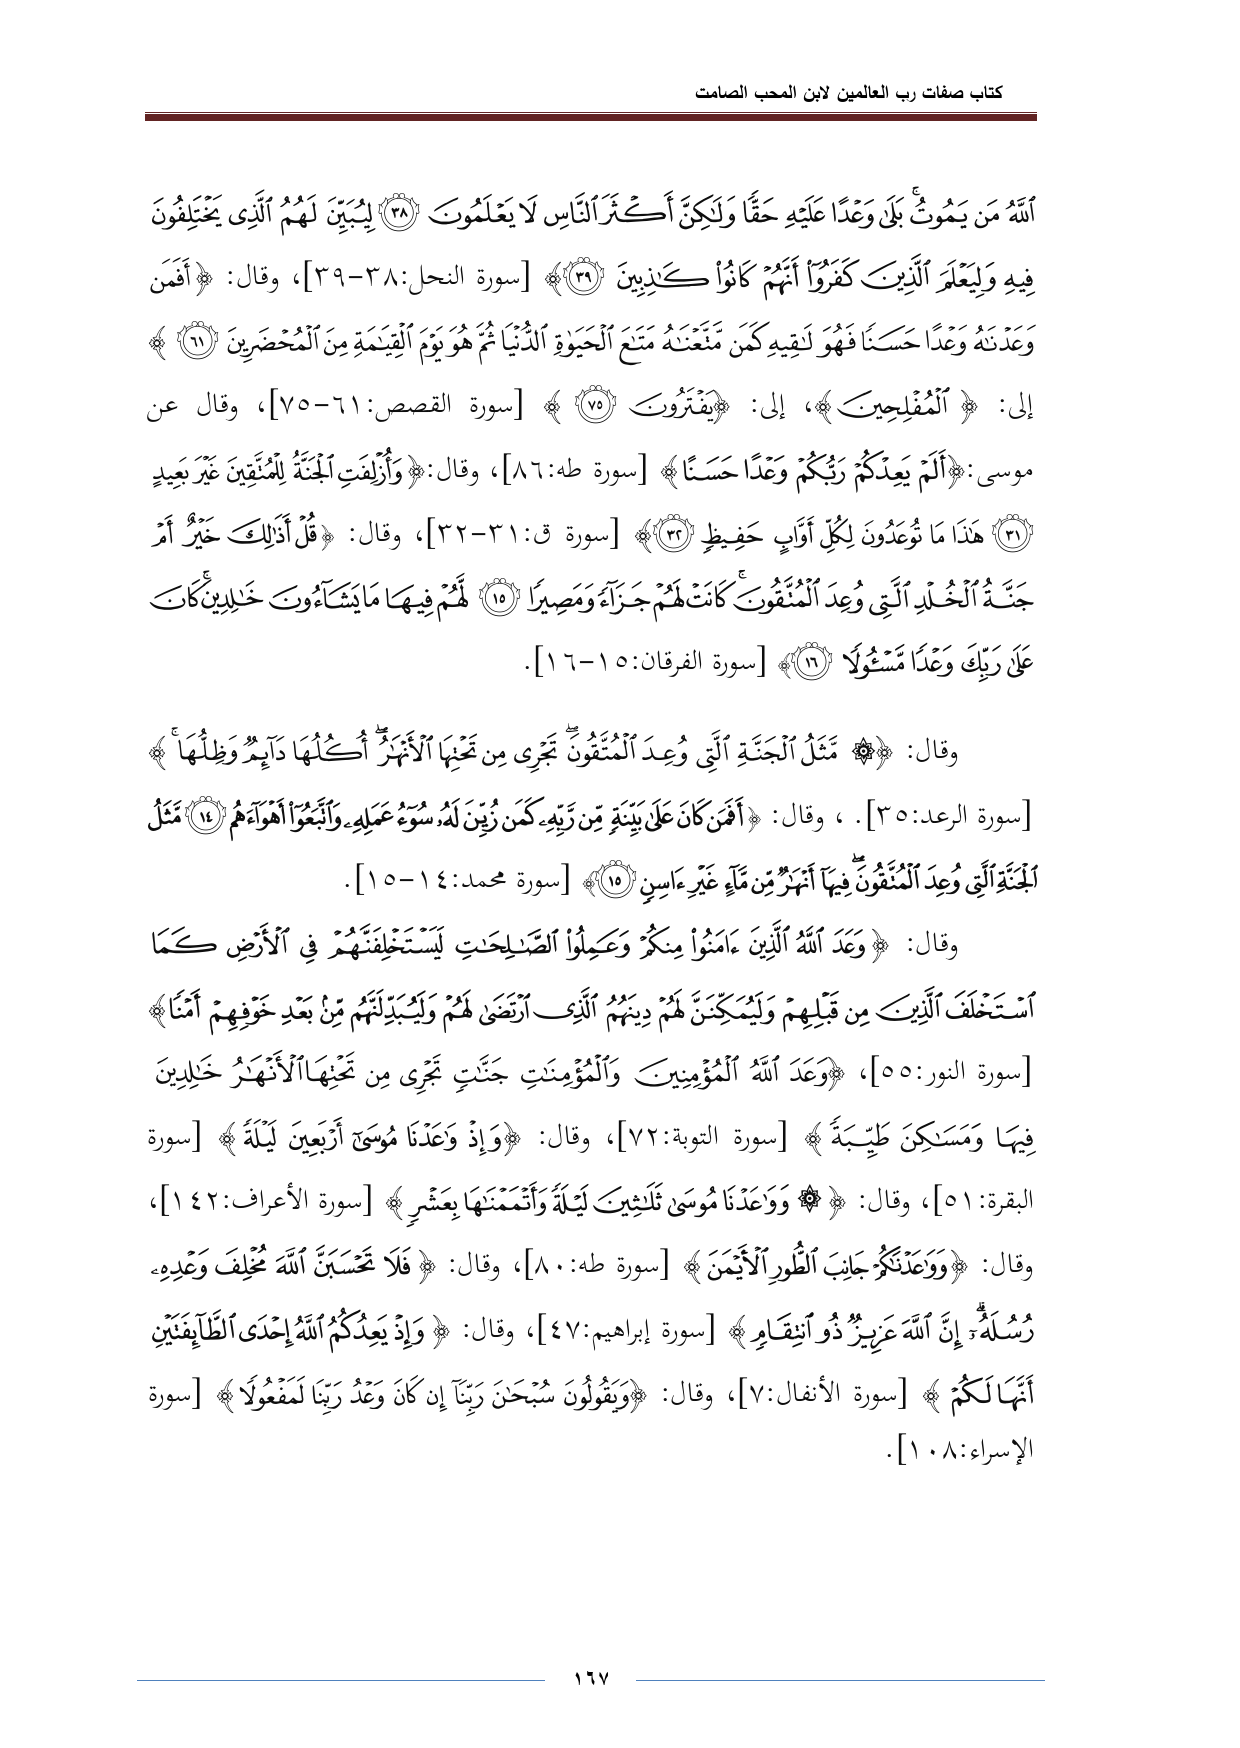 كتاب صفات رب العالمين لابن المحب الصامت
ٱللَّهُ مَن يَمُوتُۚ بَلَىٰ وَعۡدًا عَلَيۡهِ حَقّٗا وَلَٰكِنَّ أَكۡثَرَ ٱلنَّاسِ لَا يَعۡلَمُونَ ٣٨ لِيُبَيِّنَ لَهُمُ ٱلَّذِي يَخۡتَلِفُونَ
فِيهِ وَلِيَعۡلَمَ ٱلَّذِينَ كَفَرُوٓاْ أَنَّهُمۡ كَانُواْ كَٰذِبِينَ ٣٩﴾ [سورة النحل:٣٨-٣٩]، وقال: ﴿أَفَمَن
وَعَدۡنَٰهُ وَعۡدًا حَسَنٗا فَهُوَ لَٰقِيهِ كَمَن مَّتَّعۡنَٰهُ مَتَٰعَ ٱلۡحَيَوٰةِ ٱلدُّنۡيَا ثُمَّ هُوَ يَوۡمَ ٱلۡقِيَٰمَةِ مِنَ ٱلۡمُحۡضَرِينَ ٦١ ﴾
إلى: ﴿ ٱلۡمُفۡلِحِينَ﴾، إلى: ﴿يَفۡتَرُونَ ٧٥ ﴾ [سورة القصص:٦١-٧٥]، وقال عن
موسى:﴿أَلَمۡ يَعِدۡكُمۡ رَبُّكُمۡ وَعۡدًا حَسَنًا﴾ [سورة طه:٨٦]، وقال:﴿وَأُزۡلِفَتِ ٱلۡجَنَّةُ لِلۡمُتَّقِينَ غَيۡرَ بَعِيدٍ
٣١ هَٰذَا مَا تُوعَدُونَ لِكُلِّ أَوَّابٍ حَفِيظٖ ٣٢﴾ [سورة ق:٣١-٣٢]، وقال: ﴿قُلۡ أَذَٰلِكَ خَيۡرٌ أَمۡ
جَنَّةُ ٱلۡخُلۡدِ ٱلَّتِي وُعِدَ ٱلۡمُتَّقُونَۚ كَانَتۡ لَهُمۡ جَزَآءٗ وَمَصِيرٗا ١٥ لَّهُمۡ فِيهَا مَا يَشَآءُونَ خَٰلِدِينَۚ كَانَ
عَلَىٰ رَبِّكَ وَعۡدٗا مَّسۡـُٔولٗا ١٦﴾ [سورة الفرقان:١٥-١٦].
وقال: ﴿۞ مَّثَلُ ٱلۡجَنَّةِ ٱلَّتِي وُعِدَ ٱلۡمُتَّقُونَۖ تَجۡرِي مِن تَحۡتِهَا ٱلۡأَنۡهَٰرُۖ أُكُلُهَا دَآئِمٞ وَظِلُّهَاۚ ﴾
[سورة الرعد:٣٥]. ، وقال: ﴿أَفَمَن كَانَ عَلَىٰ بَيِّنَةٖ مِّن رَّبِّهِۦ كَمَن زُيِّنَ لَهُۥ سُوٓءُ عَمَلِهِۦ وَٱتَّبَعُوٓاْ أَهۡوَآءَهُم ١٤ مَّثَلُ
ٱلۡجَنَّةِ ٱلَّتِي وُعِدَ ٱلۡمُتَّقُونَۖ فِيهَآ أَنۡهَٰرٞ مِّن مَّآءٍ غَيۡرِ ءَاسِنٖ ١٥﴾ [سورة محمد:١٤-١٥].
وقال: ﴿وَعَدَ ٱللَّهُ ٱلَّذِينَ ءَامَنُواْ مِنكُمۡ وَعَمِلُواْ ٱلصَّٰلِحَٰتِ لَيَسۡتَخۡلِفَنَّهُمۡ فِي ٱلۡأَرۡضِ كَمَا
ٱسۡتَخۡلَفَ ٱلَّذِينَ مِن قَبۡلِهِمۡ وَلَيُمَكِّنَنَّ لَهُمۡ دِينَهُمُ ٱلَّذِي ٱرۡتَضَىٰ لَهُمۡ وَلَيُبَدِّلَنَّهُم مِّنۢ بَعۡدِ خَوۡفِهِمۡ أَمۡنٗا﴾
[سورة النور:٥٥]، ﴿وَعَدَ ٱللَّهُ ٱلۡمُؤۡمِنِينَ وَٱلۡمُؤۡمِنَٰتِ جَنَّٰتٖ تَجۡرِي مِن تَحۡتِهَا ٱلۡأَنۡهَٰرُ خَٰلِدِينَ
فِيهَا وَمَسَٰكِنَ طَيِّبَةٗ ﴾ [سورة التوبة:٧٢]، وقال: ﴿وَإِذۡ وَٰعَدۡنَا مُوسَىٰٓ أَرۡبَعِينَ لَيۡلَةٗ ﴾ [سورة
البقرة:٥١]، وقال: ﴿ ۞ وَوَٰعَدۡنَا مُوسَىٰ ثَلَٰثِينَ لَيۡلَةٗ وَأَتۡمَمۡنَٰهَا بِعَشۡرٖ ﴾ [سورة الأعراف:١٤٢]،
وقال: ﴿وَوَٰعَدۡنَٰكُمۡ جَانِبَ ٱلطُّورِ ٱلۡأَيۡمَنَ ﴾ [سورة طه:٨٠]، وقال: ﴿ فَلَا تَحۡسَبَنَّ ٱللَّهَ مُخۡلِفَ وَعۡدِهِۦ
رُسُلَهُۥٓۚ إِنَّ ٱللَّهَ عَزِيزٞ ذُو ٱنتِقَامٖ ﴾ [سورة إبراهيم:٤٧]، وقال: ﴿ وَإِذۡ يَعِدُكُمُ ٱللَّهُ إِحۡدَى ٱلطَّآئِفَتَيۡنِ
أَنَّهَا لَكُمۡ ﴾ [سورة الأنفال:٧]، وقال: ﴿وَيَقُولُونَ سُبۡحَٰنَ رَبِّنَآ إِن كَانَ وَعۡدُ رَبِّنَا لَمَفۡعُولٗا﴾ [سورة
الإسراء:١٠٨].
١٦٧